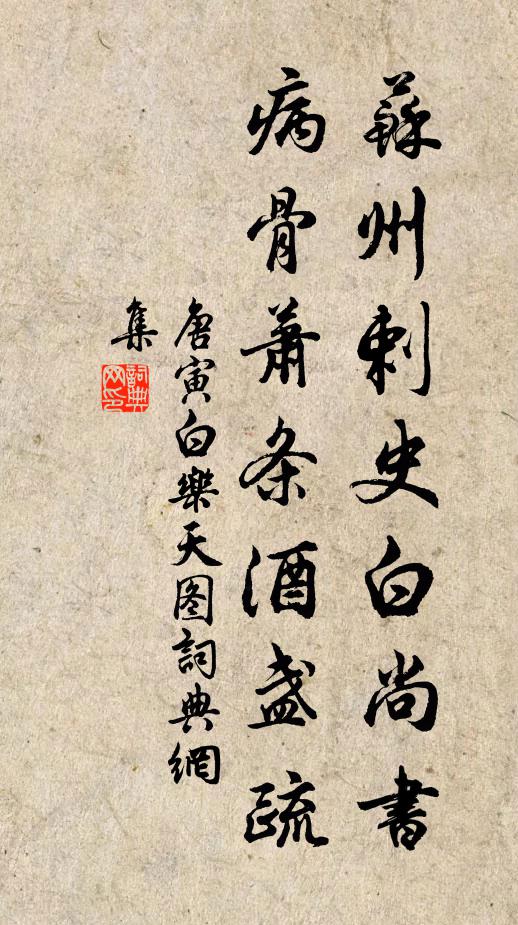 蘇州刺史白尚書
病骨蕭条酒盏疏
唐寅白樂天图詞典網
集
詞典
网印